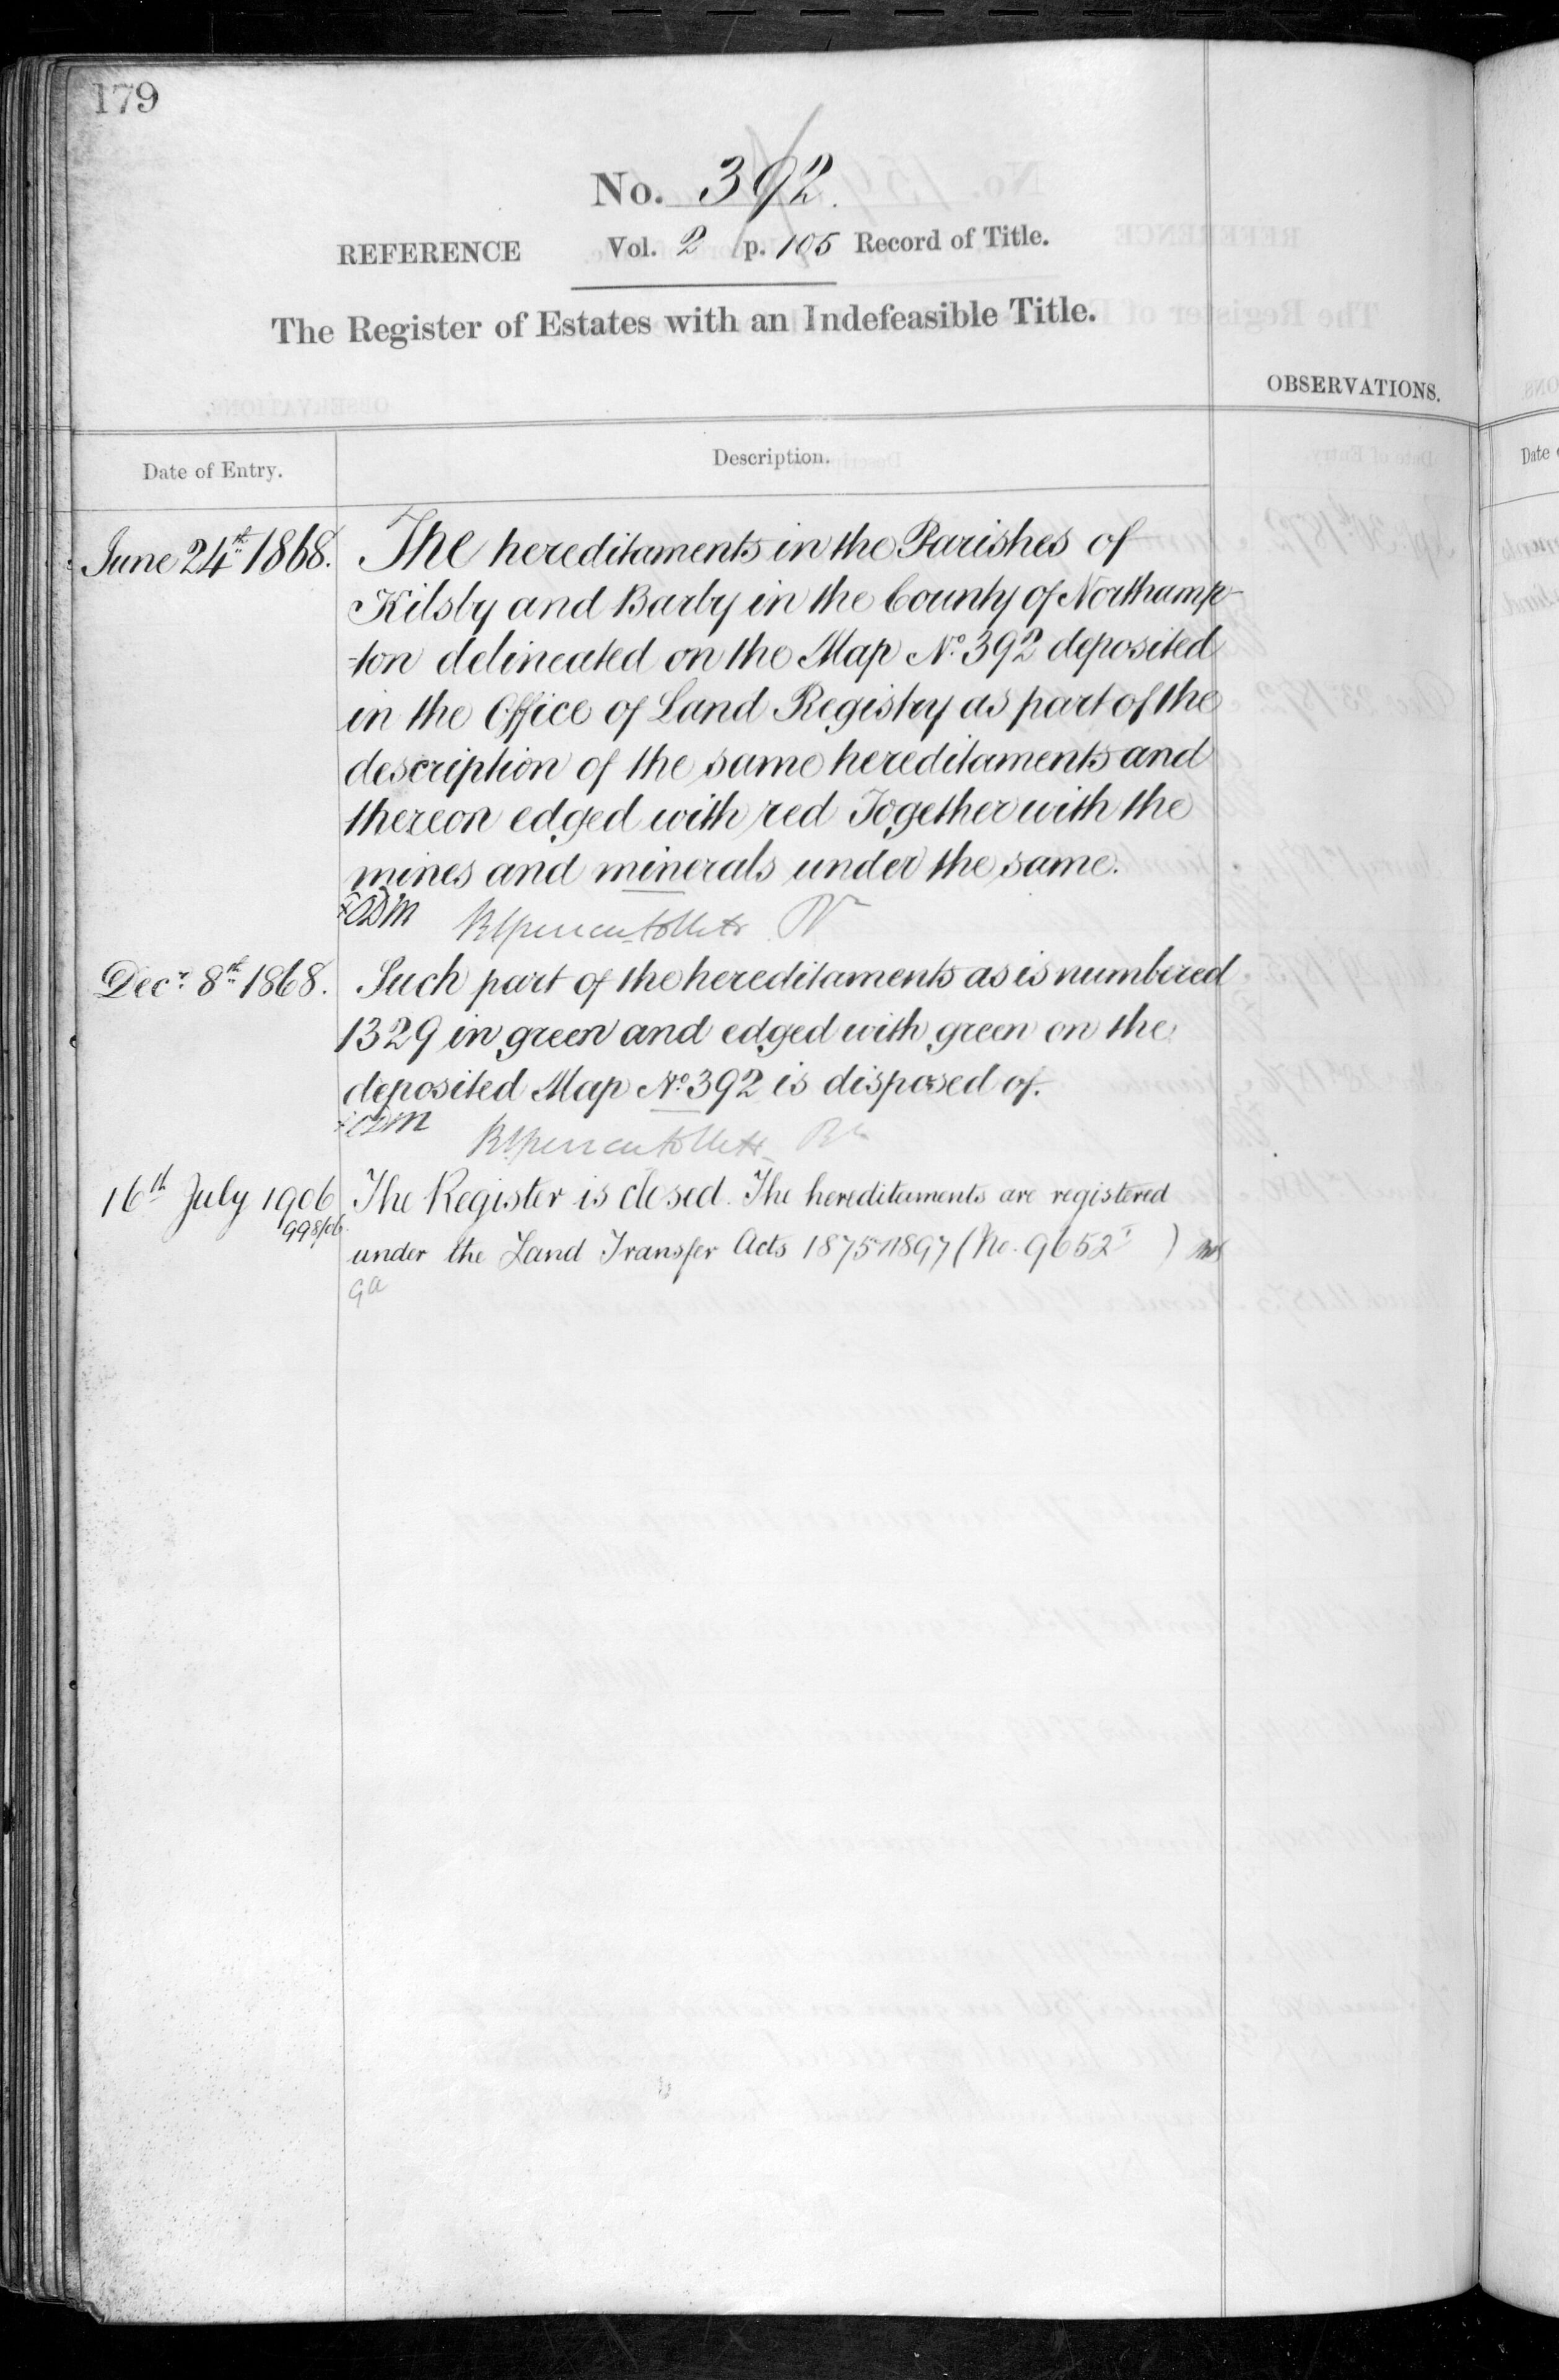 179
No. 392.
REFERENCE Vol. 2 p. 105 Record of Title.
The Register of Estates with an Indefeasible Title.
OBSERVATIONS.
Date of Entry. Description.
June 24th 1868. The hereditaments in the Parishes of
Kilsby and Barby in the County of Northamp-
-ton delineated on the Map No. 392 deposited
in the Office of Land Registry as part of the
description of the same hereditaments and
thereon edged with red Together with the
mines and minerals under the same.
Decr. 8th 1868. Such part of the hereditaments as is numbered
1329 in green and edged with green on the
deposited Map No. 392 is disposed of.
16th July 1906 The Register is closed. The hereditaments are registered
998/06. under the Land Transfer Acts 1875 & 1897 (No. 9652 )
Date